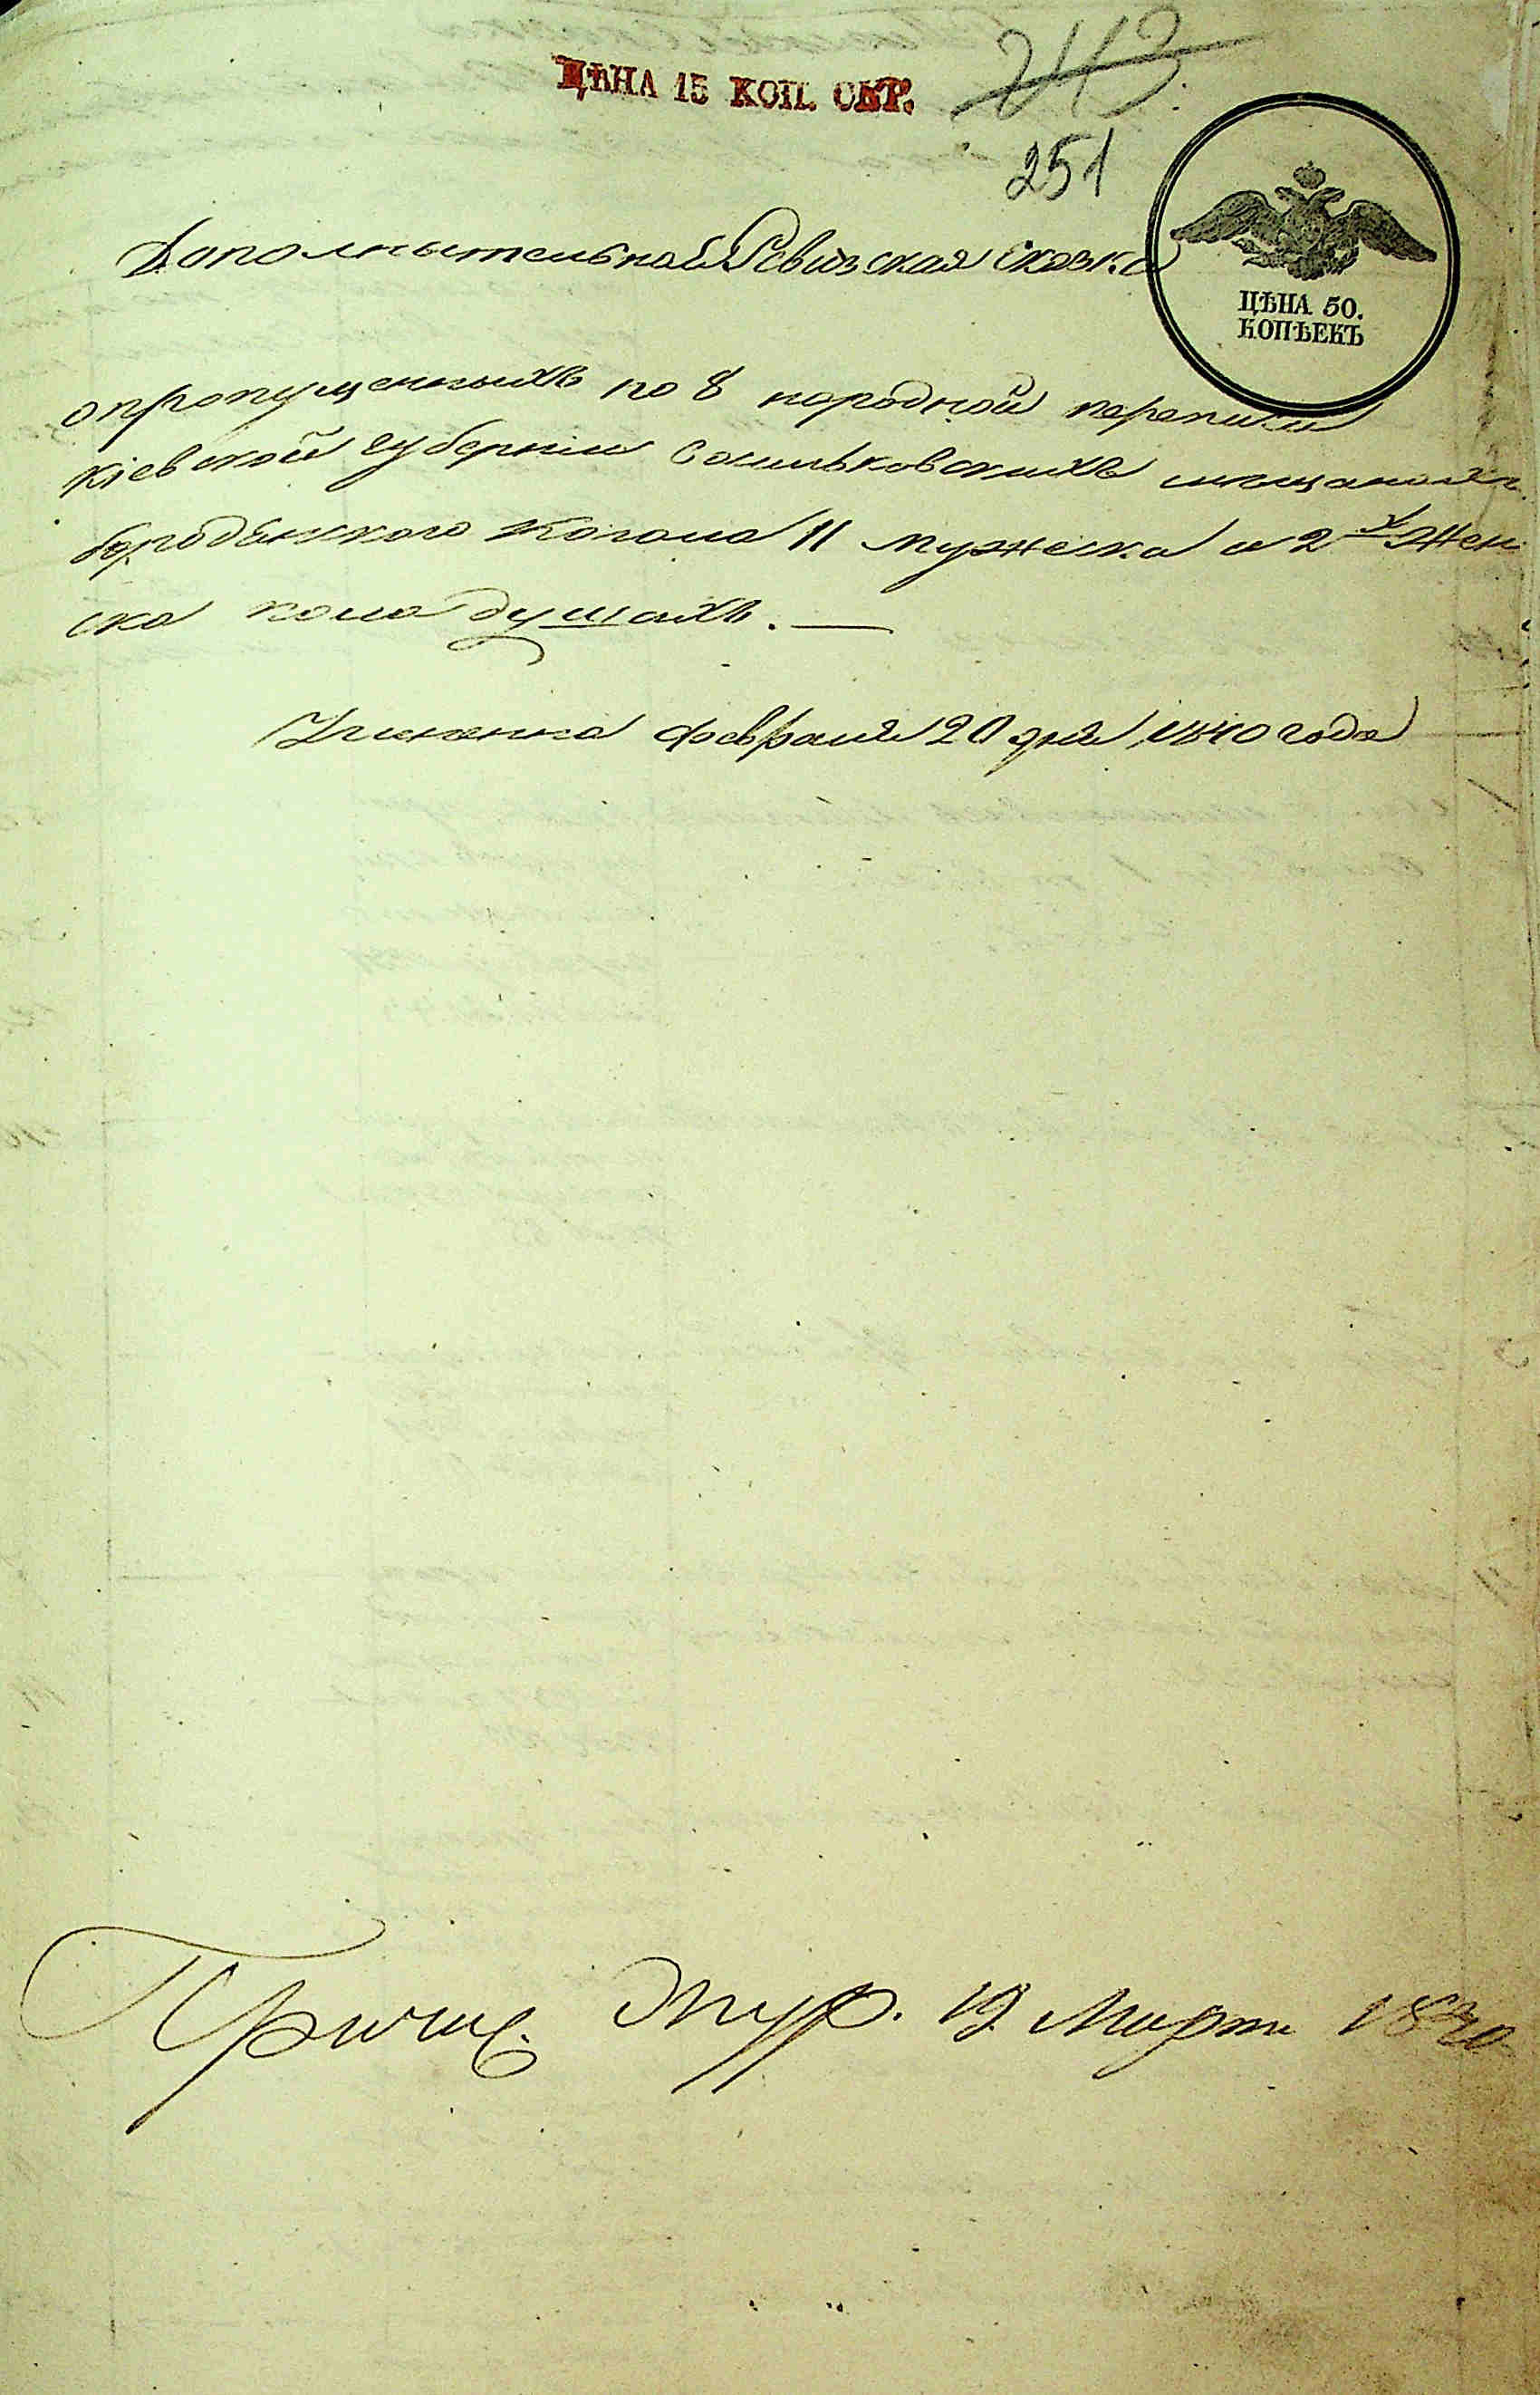 ЦѢНА 15 КОП. СЕР.
243
251
ЦѢНА 50.
КОПѢЕКЪ
Дополнытельной Ревизская сказка
опропущенныхъ по 8 народной переписи
Кіевской губерніи Васильковскихъ мещанахъ
бородянского Кагала 11 мужеска и 2х Жен
ска пола душахъ. —
Учиненна февраля 20 дня 1840 года
Жур. 19. Марта 1840